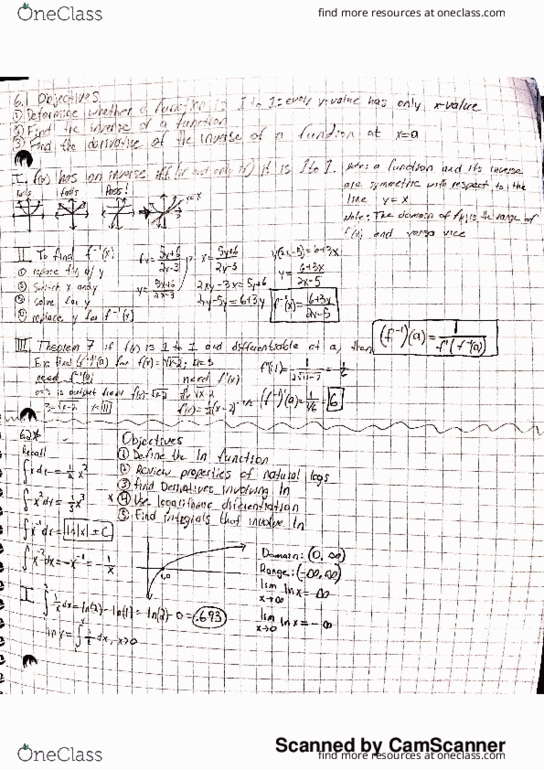 OneClass
find more resources at oneclass.com
6.1 Objectives
① Determine whether a function is 1 to 1: every y-value has only x-value
② Find the inverse of a function
③ Find the derivative of the inverse of a function at x=a
I. f(x) has an inverse iff (if and only if) it is 1 to 1.
Fails
Fails
Pass!
y=x
Note: a function and its inverse
are symmetric with respect to the
line y=x
Note: The domain of f(x) is the range of
and versa vice
II To find f⁻¹(x)
① replace f(x) w/ y
② switch x and y
③ solve for y
④ replace y for f⁻¹(x)
f(x)=5x+6/2x-3
y=5x+6/2x-3
x=5y+6/2y-3
2xy-3x=5y+6
2xy-5y=6+3x
y(2x-5)=6+3x
y=6+3x/2x-5
f⁻¹(x)=6+3x/2x-5
III. Theorem 7 if f(x) is 1 to 1 and differentiable at a, then
(f⁻¹)'(a)=1/f'(f⁻¹(a))
Ex: find (f⁻¹)'(a) for f(x)=√x-2, a=3
need f⁻¹(3)
need f'(x)
is output from f(x)=√x-2
3=√x-2 x=11
f'(11)=1/2√11-2=1/6
(f⁻¹)'(a)=1/1/6=6
6.2*
Recall
∫xdx=½x²
∫x²dx=⅓x³
∫x⁻¹dx=ln|x|+C
∫x⁻²dx=-x⁻¹=-1/x
Objectives
① Define the ln function
② Review properties of natural logs
③ Find Derivatives involving ln
④ Use logarithmic differentiation
⑤ Find integrals that involve ln
1,0
Domain: (0,∞)
Range: (-∞,∞)
lim ln x=∞
x→∞
lim ln x=-∞
x→0
I ∫1/x dx=ln(2)-ln(1)=ln(2)-0=.693
ln x=∫1/t dx, x>0
Scanned by CamScanner
OneClass
find more resources at oneclass.com